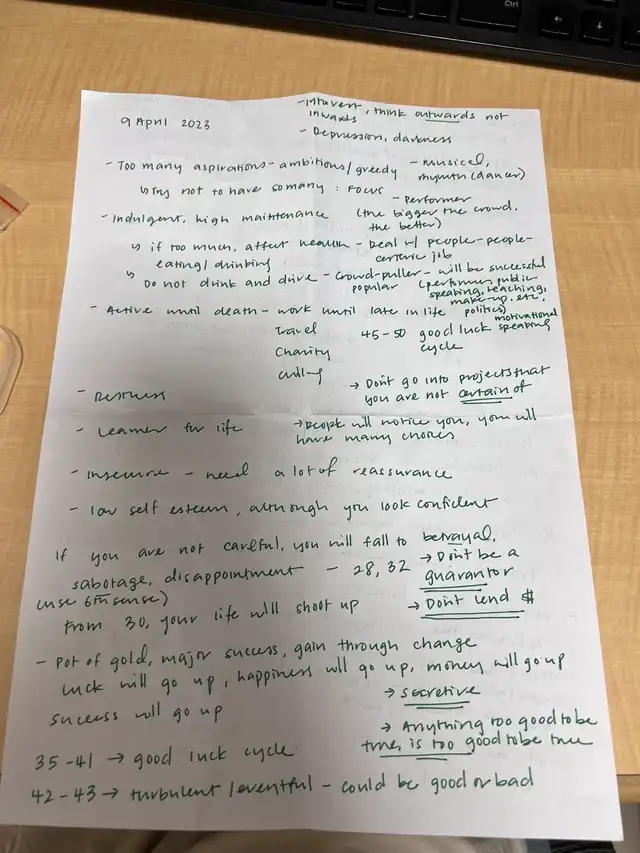 9 April 2023
- Introvert, think outwards not
inwards
- Depression, darkness
- Too many aspirations - ambitions / greedy
↳ Try not to have so many : Focus
- Musical,
rhymth (dancer)
- Performer
(the bigger the crowd,
the better)
- Indulgent, high maintenance
↳ if too much, affect health
eating / drinking
↳ Do not drink and drive
- Deal w/ people - people-
centric job
- Crowd-puller - will be successful
popular (performer, public
speaking, teaching,
make-up, etc,
politics)
motivational
speaking
- Active until death - work until late in life
Travel
Charity
45-50 good luck
cycle
→ Don't go into projects that
you are not certain of
-
- Learner for life
→ people will notice you, you will
have many choices
- Insecure - need a lot of reassurance
- low self esteem, although you look confident
If you are not careful, you will fall to betrayal,
sabotage, disappointment - 28, 32
(use 6th sense)
→ Don't be a
guarantor
From 30, your life will shoot up
→ Don't lend $
- Pot of gold, major success, gain through change
luck will go up, happiness will go up, money will go up
success will go up
→ secretive
→ Anything too good to be
true, is too good to be true
35-41 → good luck cycle
42-43 → turbulent / eventful - could be good or bad